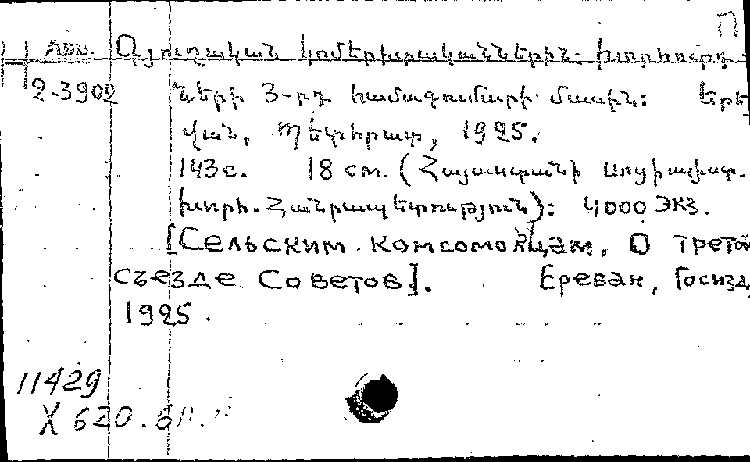 П
Арм. Գյուղական կոմերիտականներին. խորհուրդ
2-3902 ների 3-րդ համագումարի մասին: Երե
վան, Պետհրատ, 1925.
143с. 18 см. (Հայաստանի Սոցիալիստ.
խորհ. Հանրապետություն): 4000 экз.
[Сельским комсомольцам. О третьем
съезде Советов]. Ереван, Госизд,
1925.
11429
X 620.